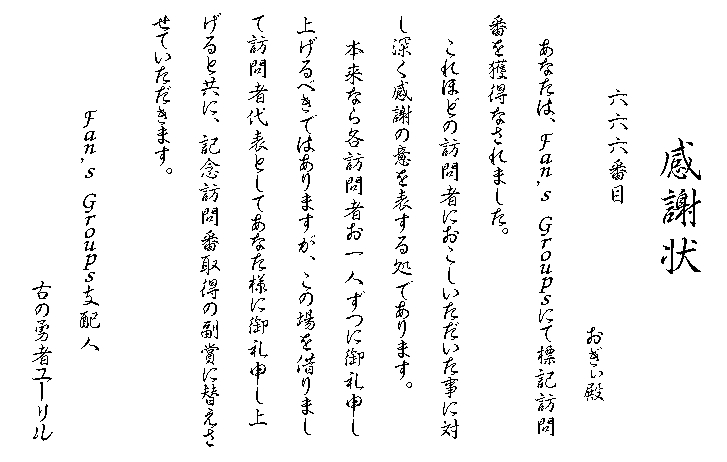 感謝状
六六六番目
おぎぃ殿
あなたは、Fan's Groupsにて標記訪問
番を獲得なされました。
これほどの訪問者におこしいただいた事に対
し深く感謝の意を表する処であります。
本来なら各訪問者お一人ずつに御礼申し
上げるべきではありますが、この場を借りまし
て訪問者代表としてあなた様に御礼申し上
げると共に、記念訪問番取得の副賞に替えさ
せていただきます。
Fan's Groups支配人
古の勇者ユーリル